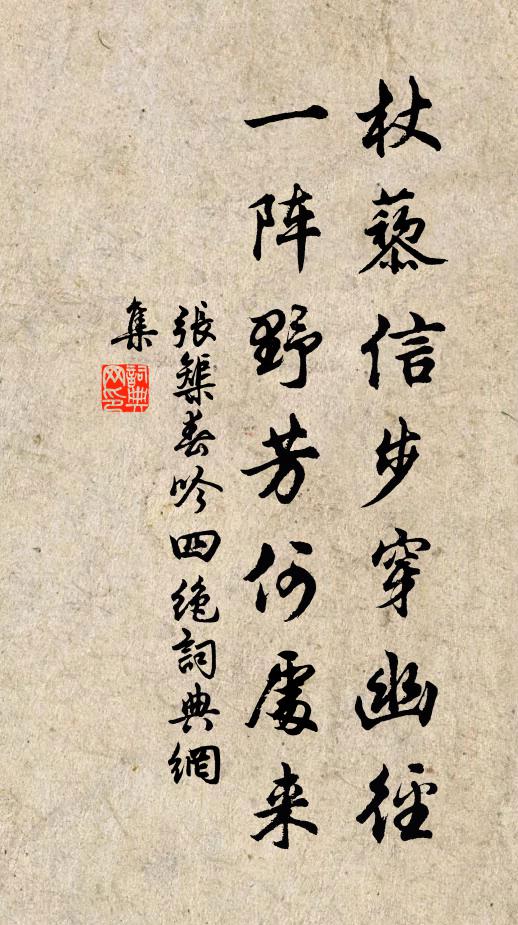 杖藜信步穿幽径
一阵野芳何處来
張榘春吟四绝詞典網
集
詞典
网印